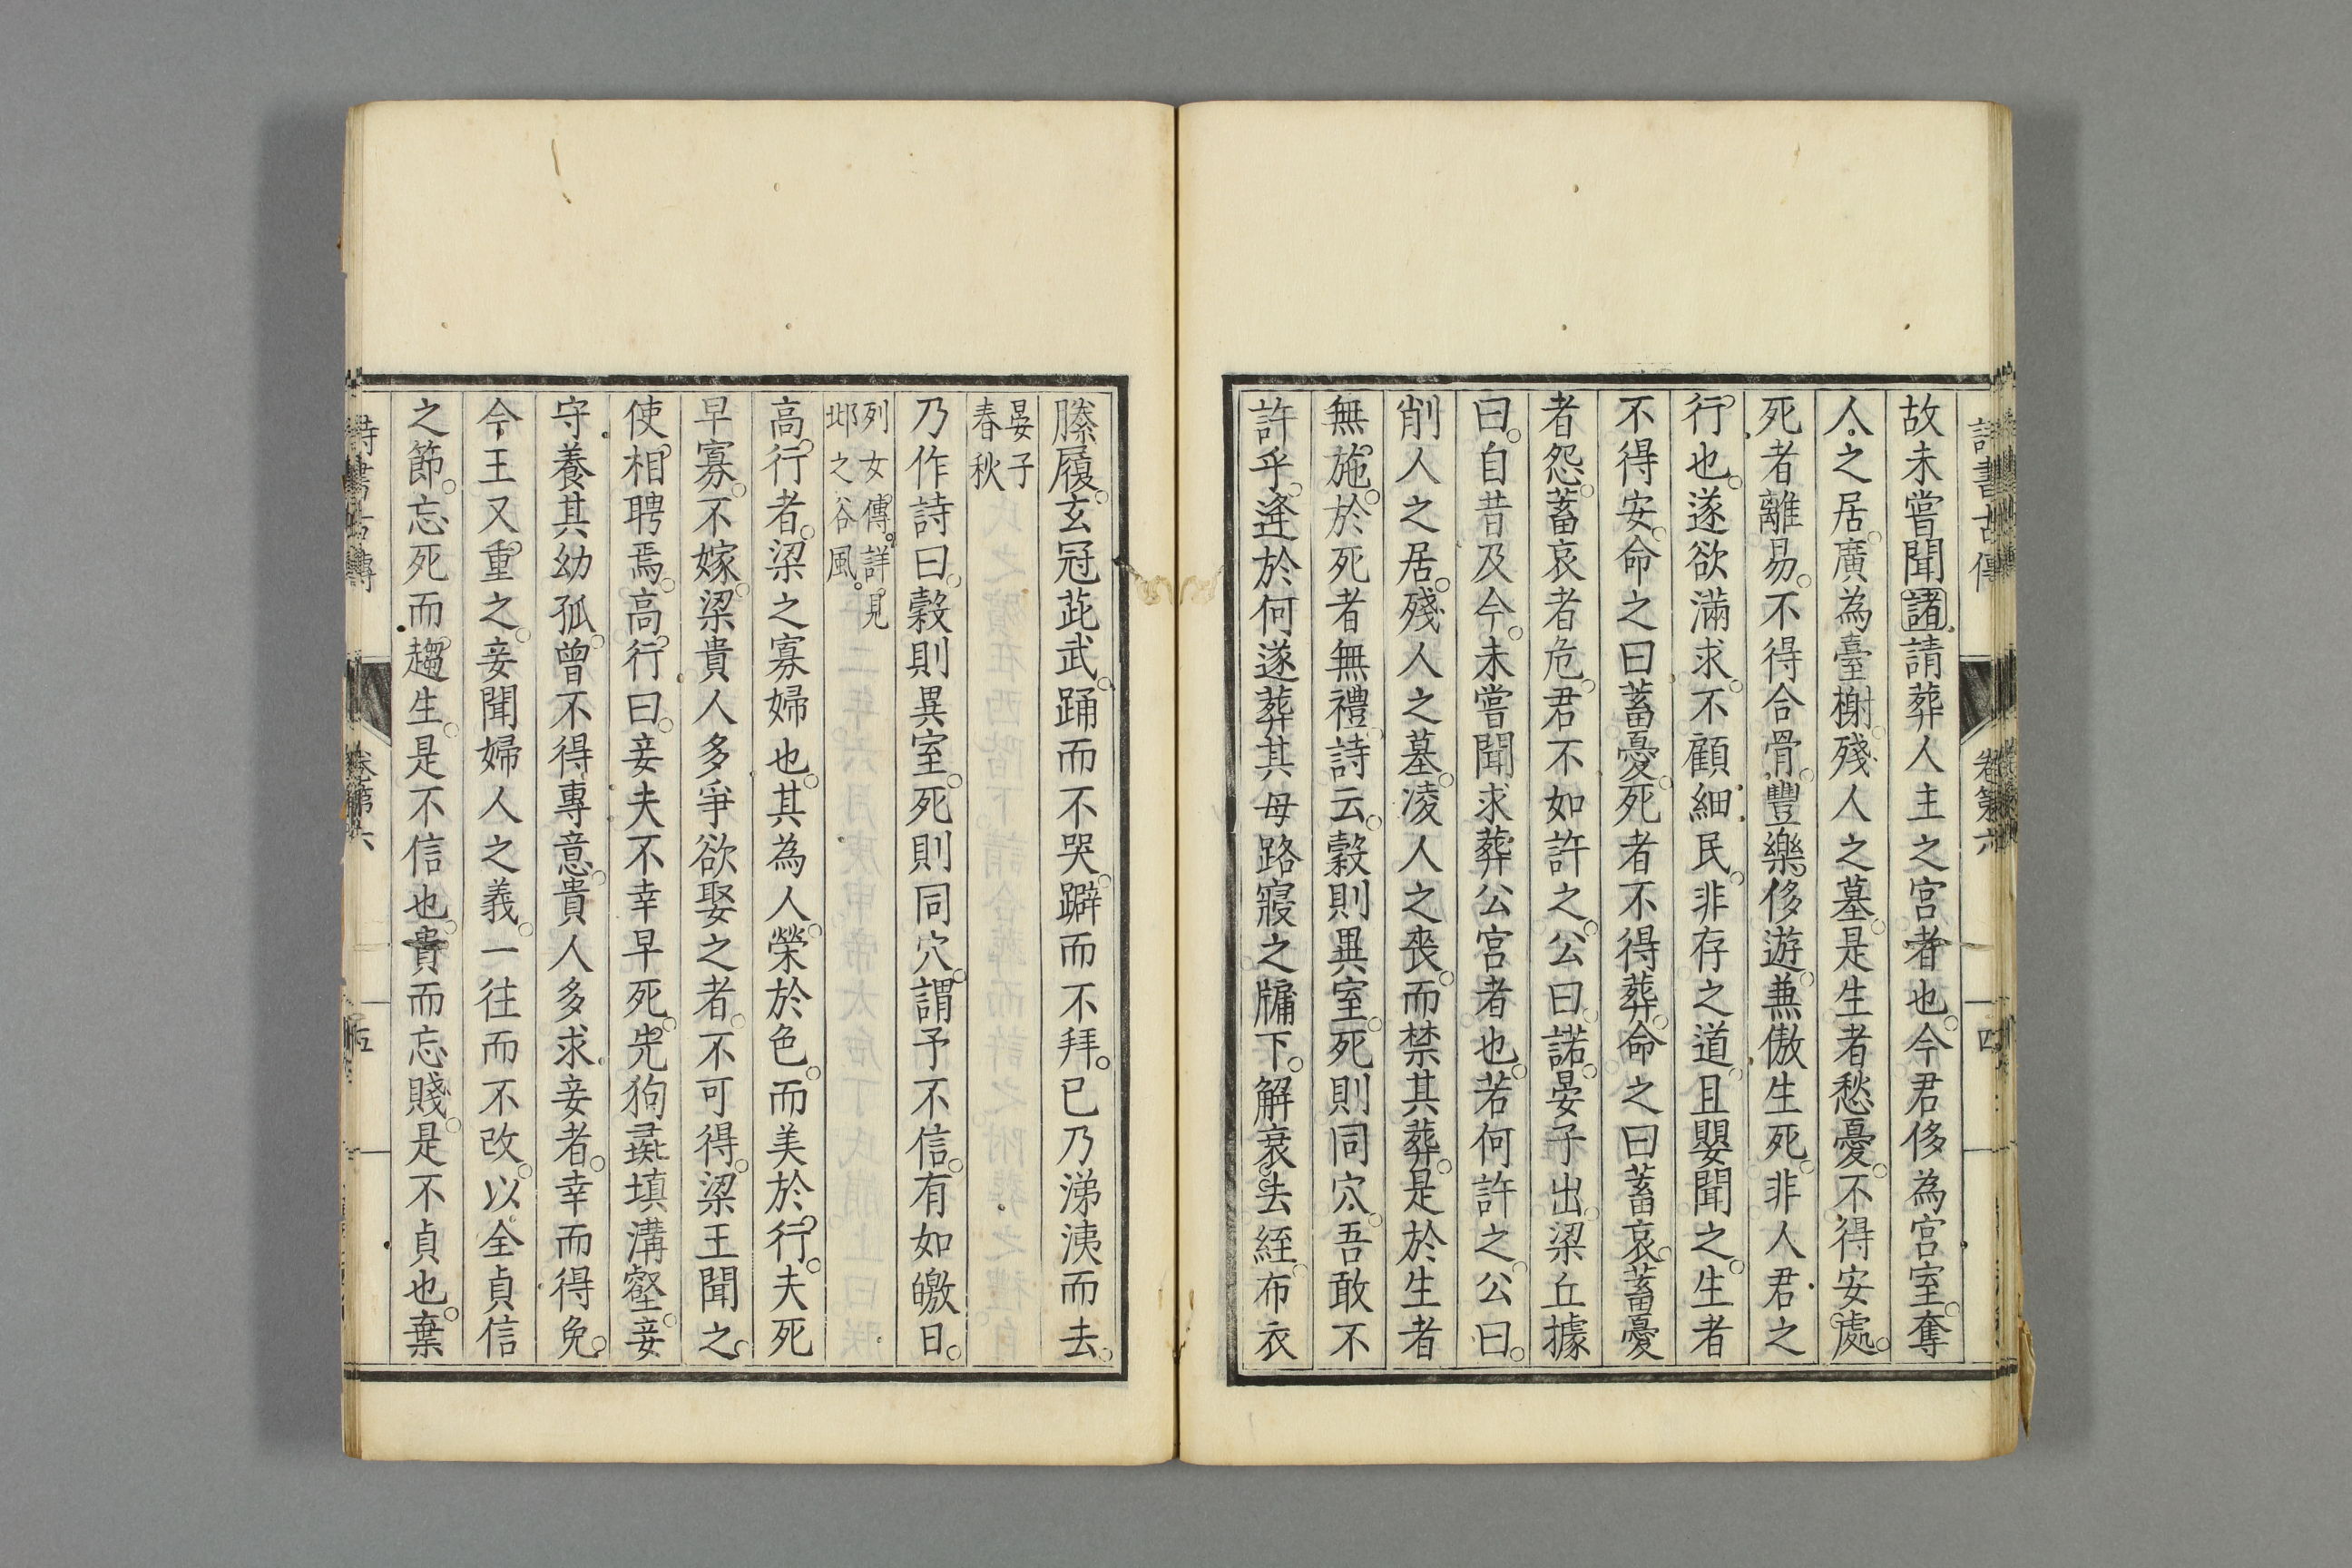 詩書古傳
卷第六
四
故未嘗聞諸請葬人主之宮者也。今君侈為宮室。奪
人之居。廣為臺榭。殘人之墓。是生者愁憂。不得安處。
死者離易。不得合骨。豐樂侈遊。兼傲生死。非人君之
行也。遂欲滿求。不顧細民。非存之道。且嬰聞之。生者
不得安。命之曰蓄憂。死者不得葬。命之曰蓄哀。蓄憂
者怨。蓄哀者危。君不如許之。公曰。諾。晏子出。梁丘據
曰。自昔及今。未嘗聞求葬公宮者也。若何許之。公曰。
削人之居。殘人之墓。凌人之喪。而禁其葬。是於生者
無施。於死者無禮。詩云。穀則異室。死則同穴。吾敢不
許乎。逄於何遂葬其母路寢之牖下。解衰去絰。布衣
縢履。玄冠茈武。踊而不哭。躃而不拜。已乃涕洟而去。
晏子
春秋
乃作詩曰。穀則異室。死則同穴。謂予不信。有如皦日。
列女傳。詳見
邶之谷風。
高行者。梁之寡婦也。其為人。榮於色。而美於行。夫死
早寡。不嫁。梁貴人多爭欲娶之者。不可得。梁王聞之。
使相聘焉。高行曰。妾夫不幸早死。先狗彘填溝壑。妾
守養其幼孤。曾不得專意。貴人多求妾者。幸而得免。
今王又重之。妾聞婦人之義。一往而不改。以全貞信
之節。忘死而趨生。是不信也。貴而忘賤。是不貞也。棄
詩書古傳
卷第六